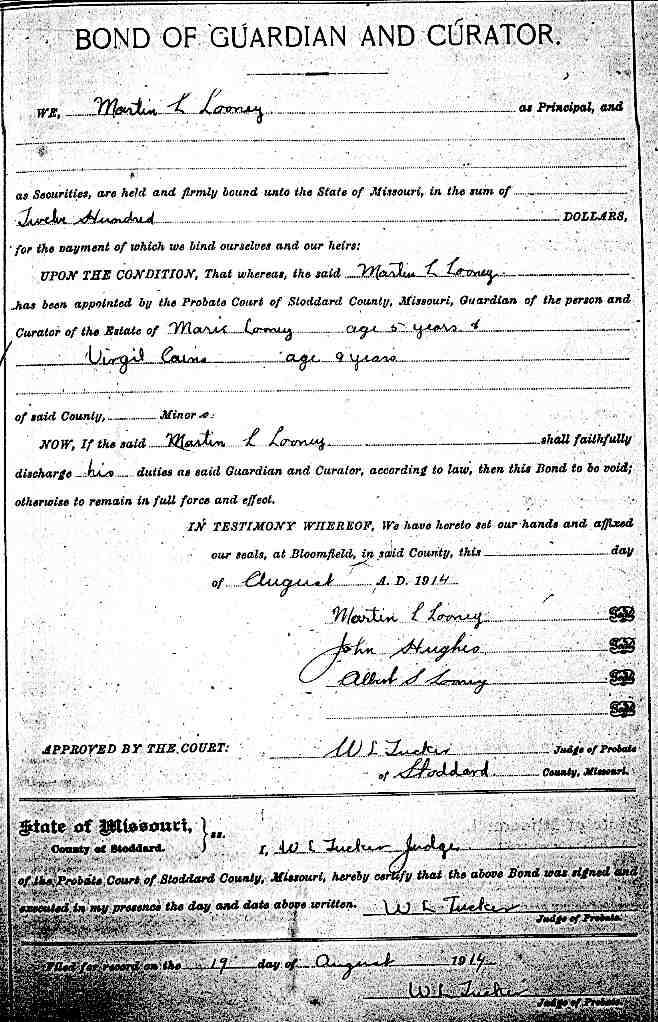 BOND OF GUARDIAN AND CURATOR.
WE, Martin L Looney as Principal, and
as Securities, are held and firmly bound unto the State of Missouri, in the sum of
Twelve Hundred DOLLARS,
for the payment of which we bind ourselves and our heirs:
UPON THE CONDITION, That whereas, the said Martin L Looney
has been appointed by the Probate Court of Stoddard County, Missouri, Guardian of the person and
Curator of the Estate of Marie Looney age 5 years &
Virgil age 9 years
of said County, Minor s.
NOW, If the said Martin L Looney shall faithfully
discharge his duties as said Guardian and Curator, according to law, then this Bond to be void;
otherwise to remain in full force and effect.
IN TESTIMONY WHEREOF, We have hereto set our hands and affixed
our seals, at Bloomfield, in said County, this day
of August A. D. 1914
Martin L Looney Seal
John Hughes Seal
Albert S Looney Seal
Seal
APPROVED BY THE COURT: W L Tucker Judge of Probate
of Stoddard County, Missouri.
State of Missouri, } ss.
County of Stoddard. I, W L Tucker Judge
of the Probate Court of Stoddard County, Missouri, hereby certify that the above Bond was signed and
executed in my presence the day and date above written. W L Tucker
Judge of Probate.
Filed for record on the 19 day of August 1914
W L Tucker
Judge of Probate.